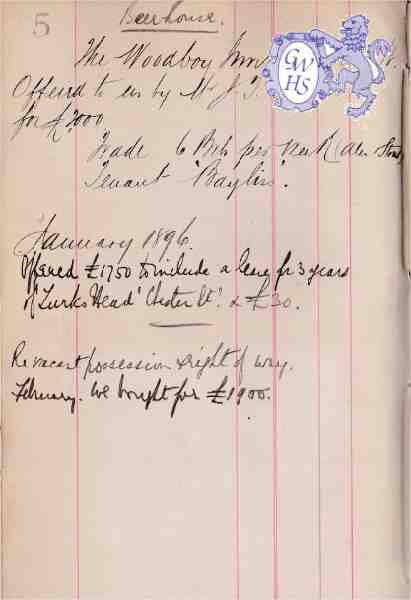 5
Beerhouse.
The Woodboy Inn
GW
HS
Offered to us by Mr J. T.
for £2000
Trade 6 Brls per week (Ales Stout
Tenant 'Bayliss'.
January 1896.
Offered £1750 to include a lease for 3 years
of 'Turks Head' Chester St. @ £30.
Re vacant possession & right of way.
February. We bought for £1900.